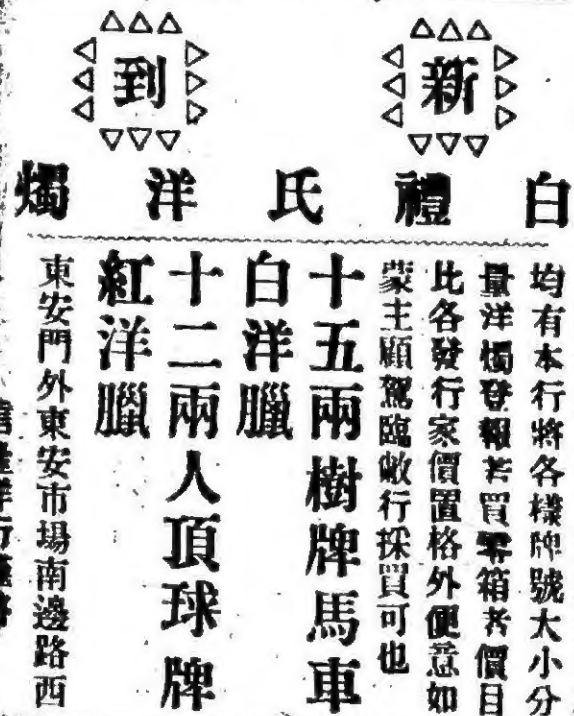 新到
白禮氏洋燭
均有本行將各樣牌號大小分
量洋燭登報若買零箱者價目
比各發行家價置格外便意如
蒙主顧駕臨敝行採買可也
十五兩樹牌馬車
白洋臘
十二兩人頂球牌
紅洋臘
東安門外東安市場南邊路西